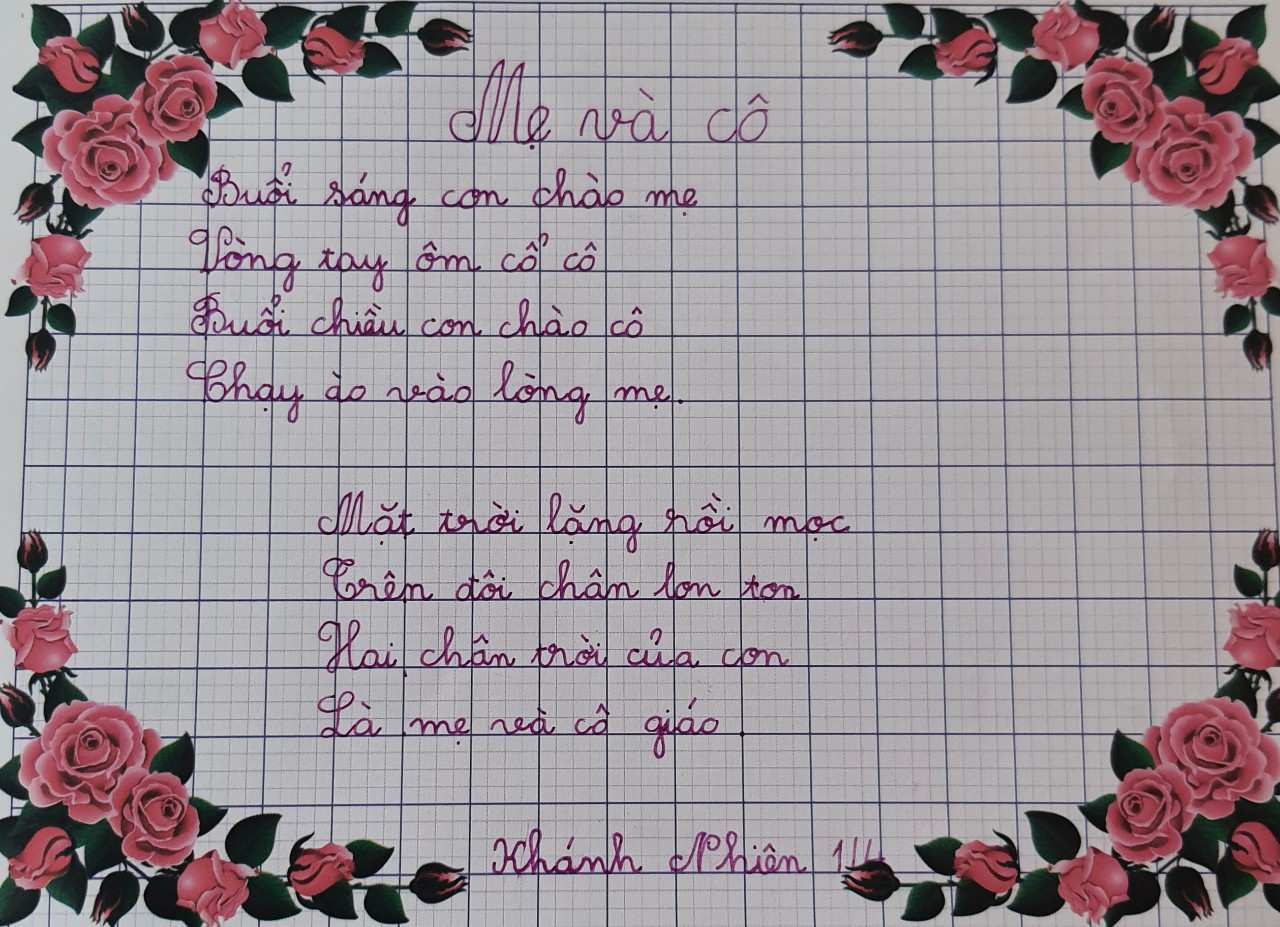 Mẹ và cô
Buổi sáng con chào mẹ
Vòng tay ôm cổ cô
Buổi chiều con chào cô
Chạy ào vào lòng mẹ.
Mặt trời lặng rồi mọc
Trên đôi chân lon ton
Hai chân trời của con
Là mẹ và cô giáo.
Khánh Nhiên